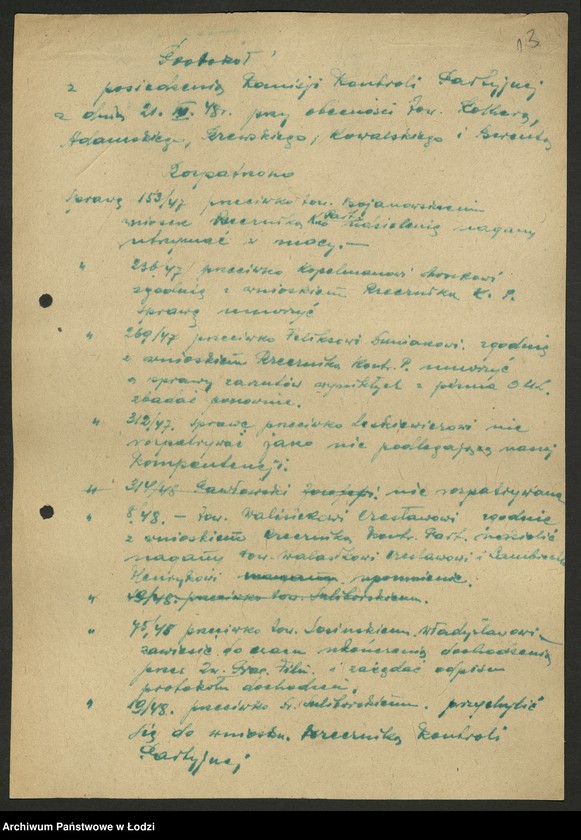 13
Protokół
z posiedzenia Komisji Kontroli Partyjnej
z dnia 21. 48r. przy obecności tow. Kolbera,
Adamskiego, Kowalskiego i
Rozpatrzono
Sprawę 153/47 przeciwko tow. Bojanowskiemu
wniosek Rzecznika Partii nagany
utrzymać w mocy. —
" 236/47 przeciwko Kopelmanowi
zgodnie z wnioskiem Rzecznika K. P.
sprawę umorzyć
" 269/47 przeciwko Feliksowi zgodnie
z wnioskiem Rzecznika Kontr. P. umorzyć
a sprawę zarzutów wynikłych z pisma
zbadać ponownie.
" 312/47. sprawę przeciwko Leskiewiczowi nie
rozpatrywać jako nie podlegającą naszej
Kompentencji.
" 314/48 Pawłowski Józef nie rozpatrywano
" 8.48. — tow. Czesławowi zgodnie
z wnioskiem rzecznika Kontr. Part. udzielić
naganę tow. Czesławowi i
Henrykowi naganę upomnienie.
" 19/48. przeciwko tow. Suliborskiemu.
" 45/48 przeciwko tow. Władysławowi
zawiesić do czasu ukończenia dochodzenia
przez Zw. Prac. Film. i zażądać odpisu
protokółu dochodzeń.
" 19/48. przeciwko Suliborskiemu. przychylić
się do wniosku rzecznika Kontroli
Partyjnej
Archiwum Państwowe w Łodzi